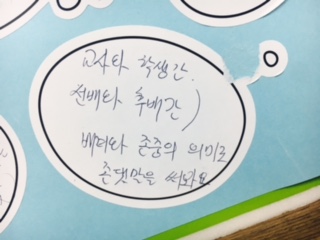 교사와 학생간.
선배와 후배간)
배려와 존중의 의미로
존댓말을 써봐요